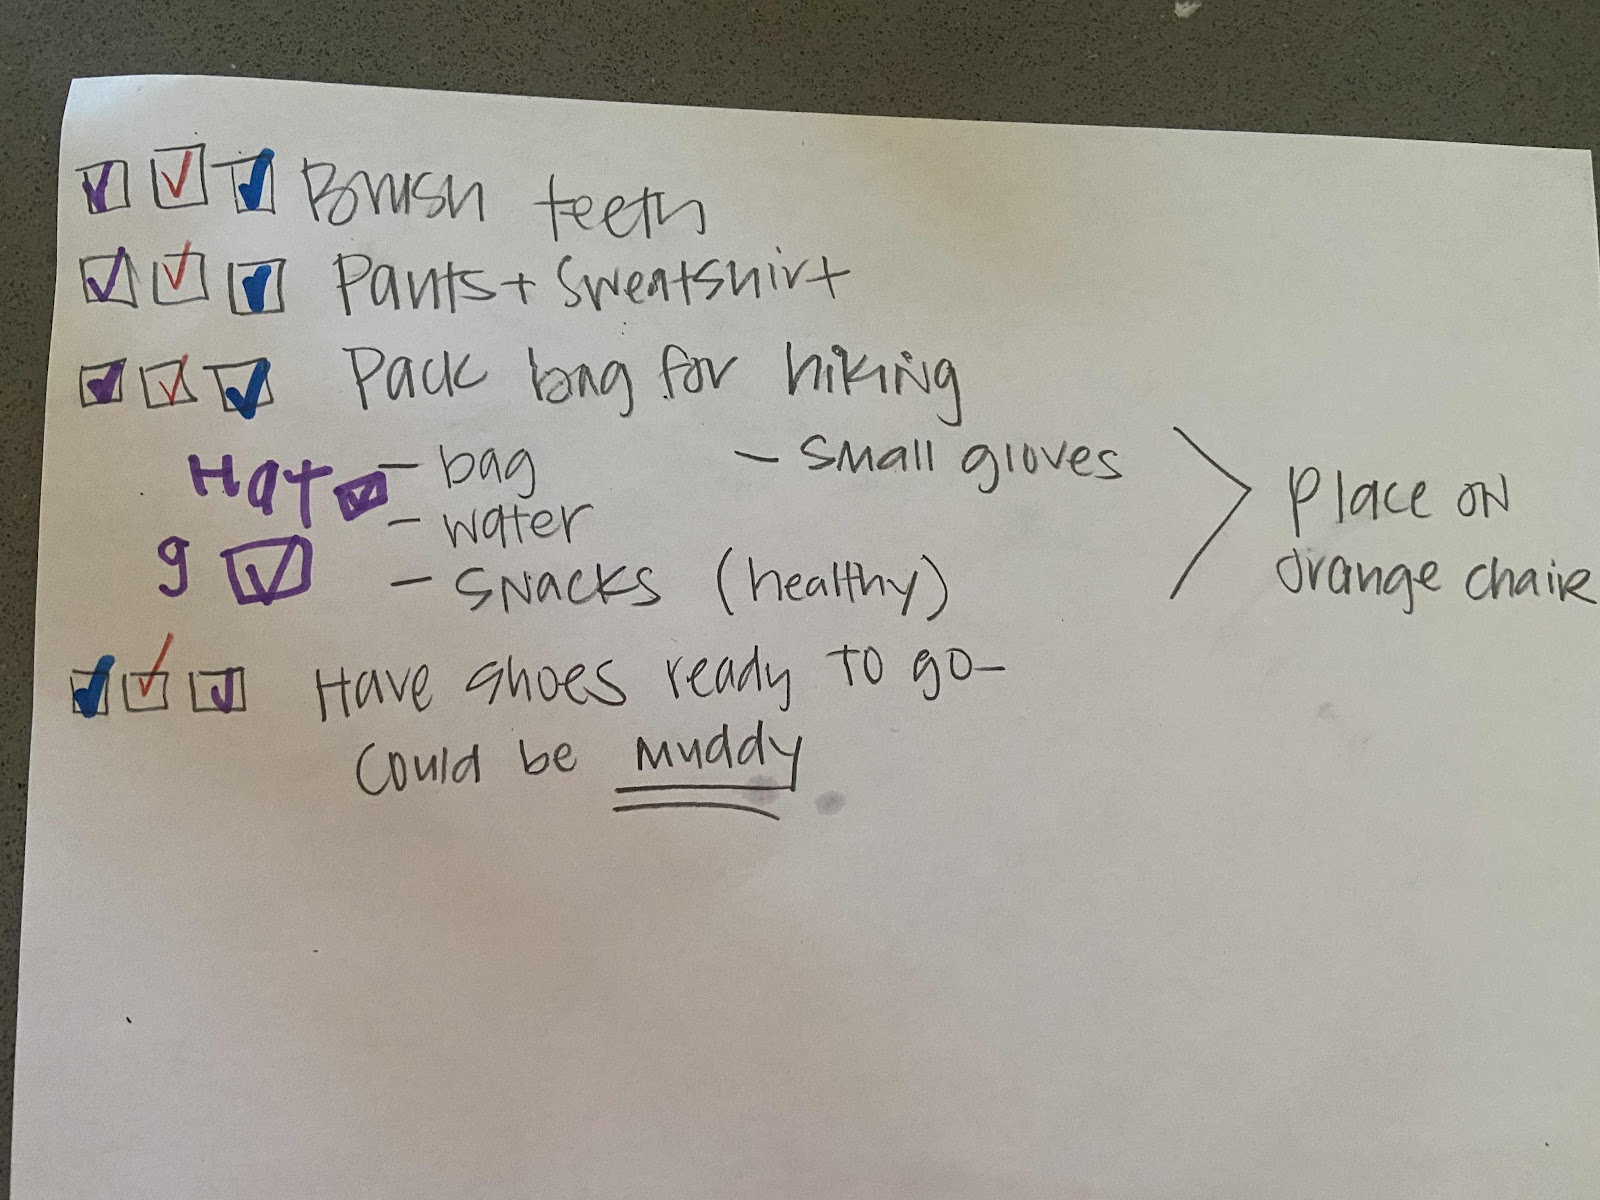 Brush teeth
Pants + Sweatshirt
Pack bag for hiking
Hat
- bag
- small gloves
- water
g
- snacks (healthy)
Place on
orange chair
Have shoes ready to go-
could be muddy